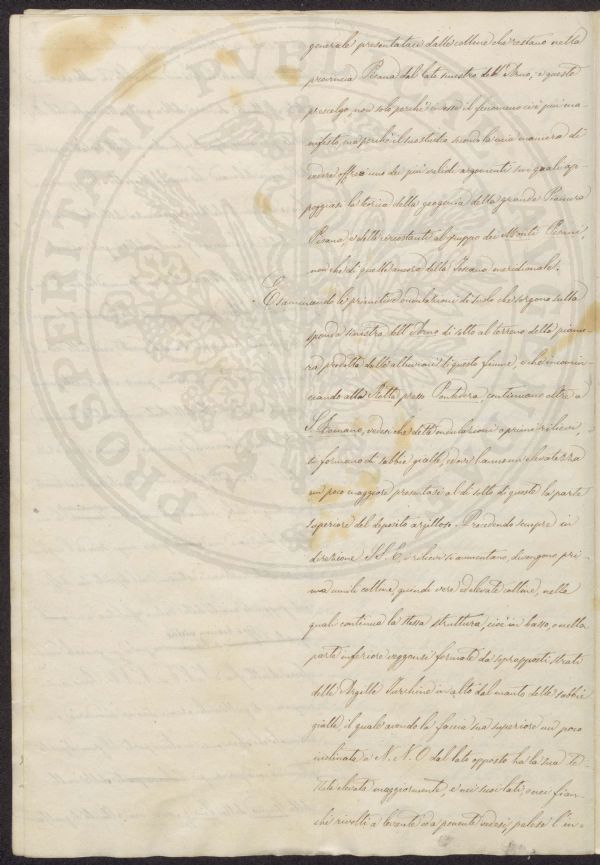 generale presentataci dalle colline che restano nella
provincia Pisana dal lato sinistro dell'Arno, e queste
prescelgo, non solo perchè in esse il fenomeno ciè più ma-
nifesto, ma perchè il suo studio secondo la mia maniera di
vedere offre uno dei più validi argomenti su i quali ap-
poggiasi la teorica della geogenia della grande Pianura
Pisana, e delle circostanti al gruppo dei Monti Pisani,
non che di quelle ancora della Toscana meridionale.
Esaminando le primitive ondulazioni di suolo che sorgono sulla
sponda sinistra dell'Arno di sotto al terreno della pianu-
ra, prodotta dalle alluvioni di questo fiume, e che incomin-
ciando alla Rotta presso Pontedera, continuano oltre a
S. Romano, vedesi che dette ondulazioni, o primi rilievi,
si formano di sabbie gialle, ed ove hanno elevatezza
un poco maggiore presentasi al di sotto di queste la parte
superiore del deposito argilloso. Procedendo sempre in
direzione S.S.E. i rilievi si aumentano, divengono pri-
ma umili colline, quindi vere ed elevate colline, nelle
quali continua la stessa struttura, cioè in basso, o nella
parte inferiore veggonsi formate da sopraposti strati
delle Argille Turchine in alto dal manto delle sabbie
gialle, il quale avendo la faccia sua superiore un poco
inclinata a N.N.O dal lato opposto ha la sua te-
stata elevata maggiormente, e nei suoi lati, o nei fian-
chi rivolti a levante ed a ponente vedesi, palese l'in-
PROSPERITATI PVBL